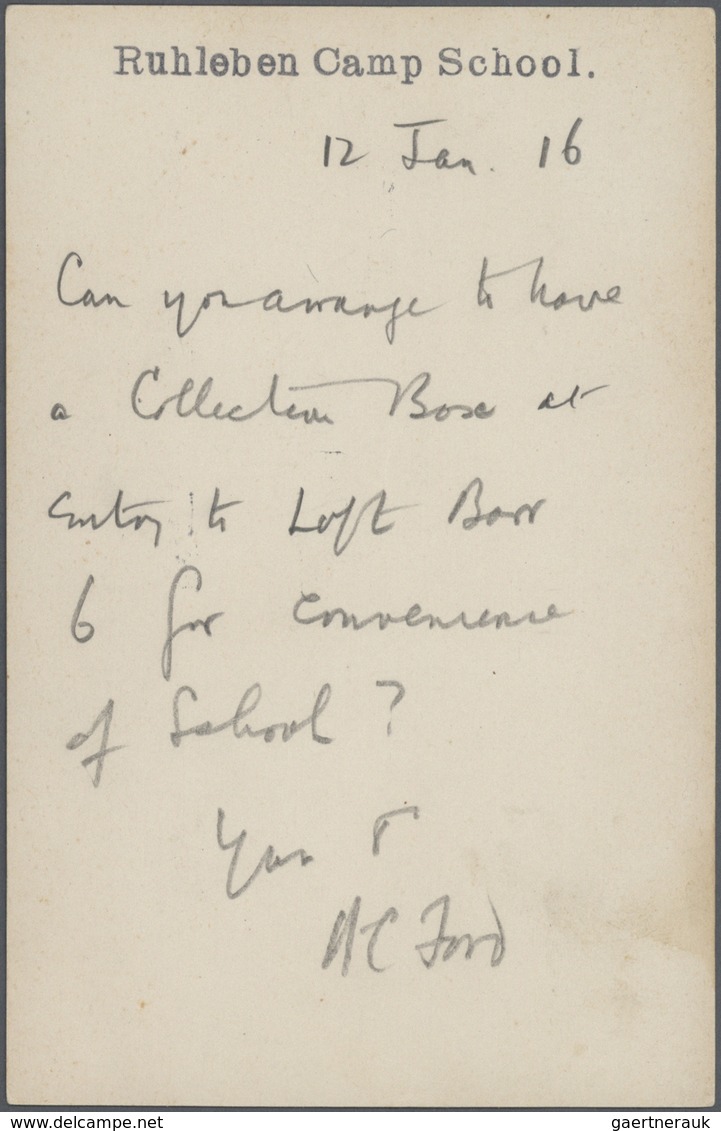 Ruhleben Camp School.
12 Jan. 16
Can you arrange to have
a Collection Box at
entry to Loft Barr
6 for convenience
of School ?
Yours
Ford
gaertnerauk